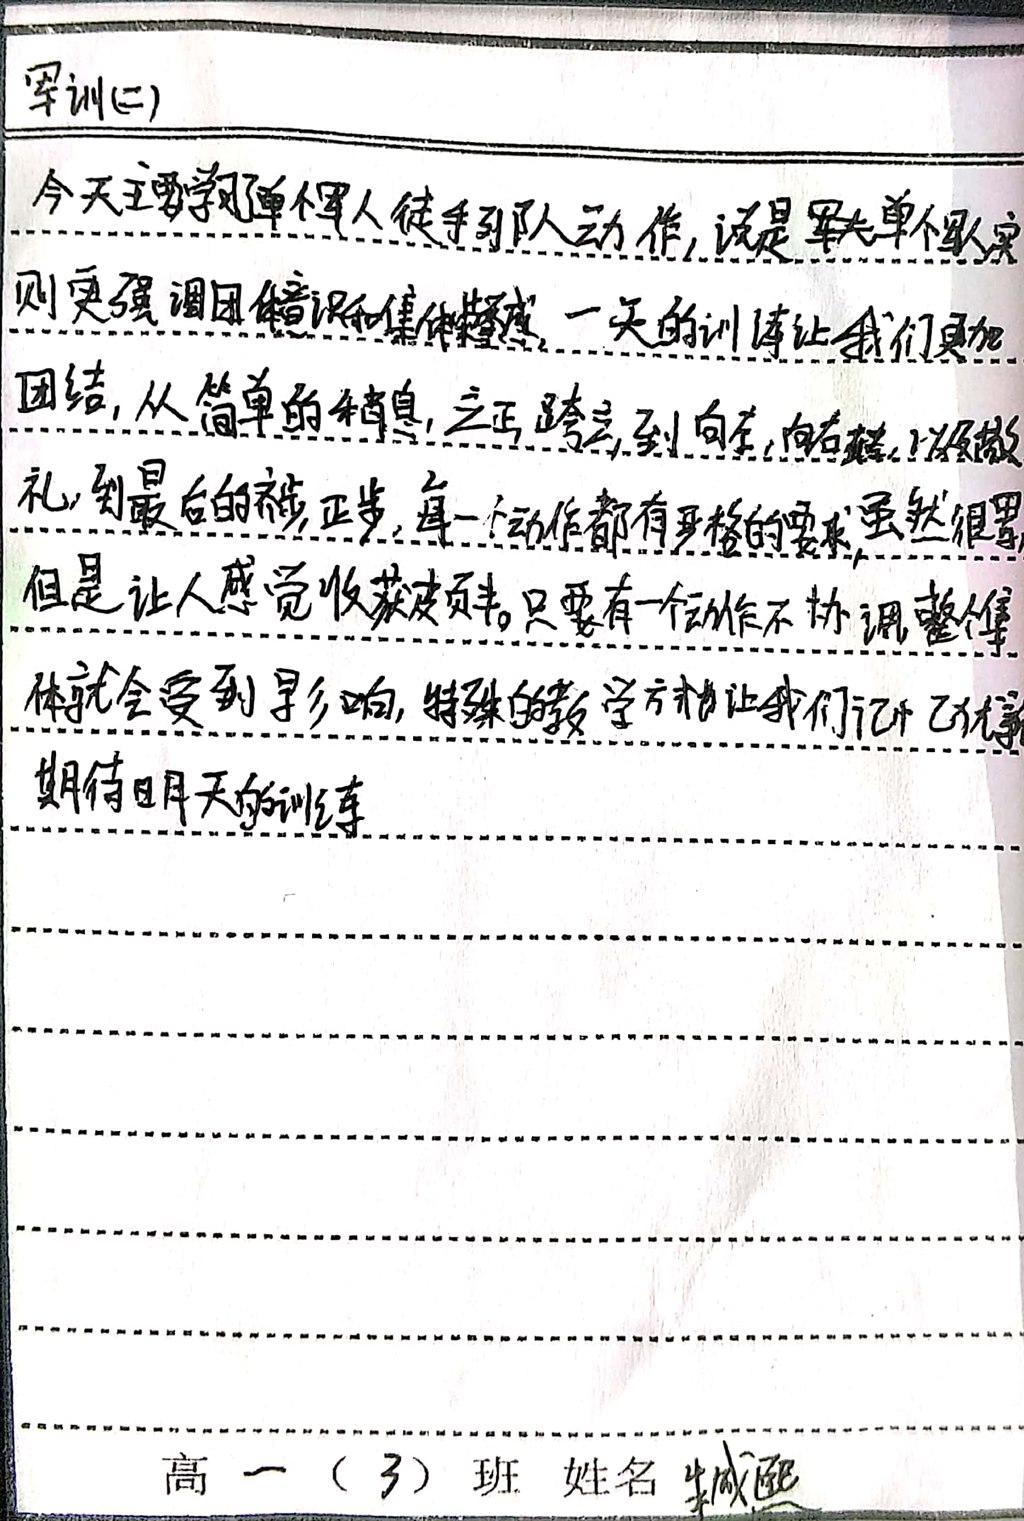 军训(二)
今天主要学习了单个军人徒手列队动作,说是军人单个军人实
则更强调团体意识和集体荣誉感,一天的训练让我们更加
团结,从简单的稍息,立正,跨立,到向左,向右转,以及敬
礼,到最后的齐步,正步,每一个动作都有严格的要求,虽然很累,
但是让人感觉收获颇丰。只要有一个动作不协调,整个集
体就会受到影响,特殊的教学方式让我们记忆犹新
期待明天的训练
高一(3)班 姓名